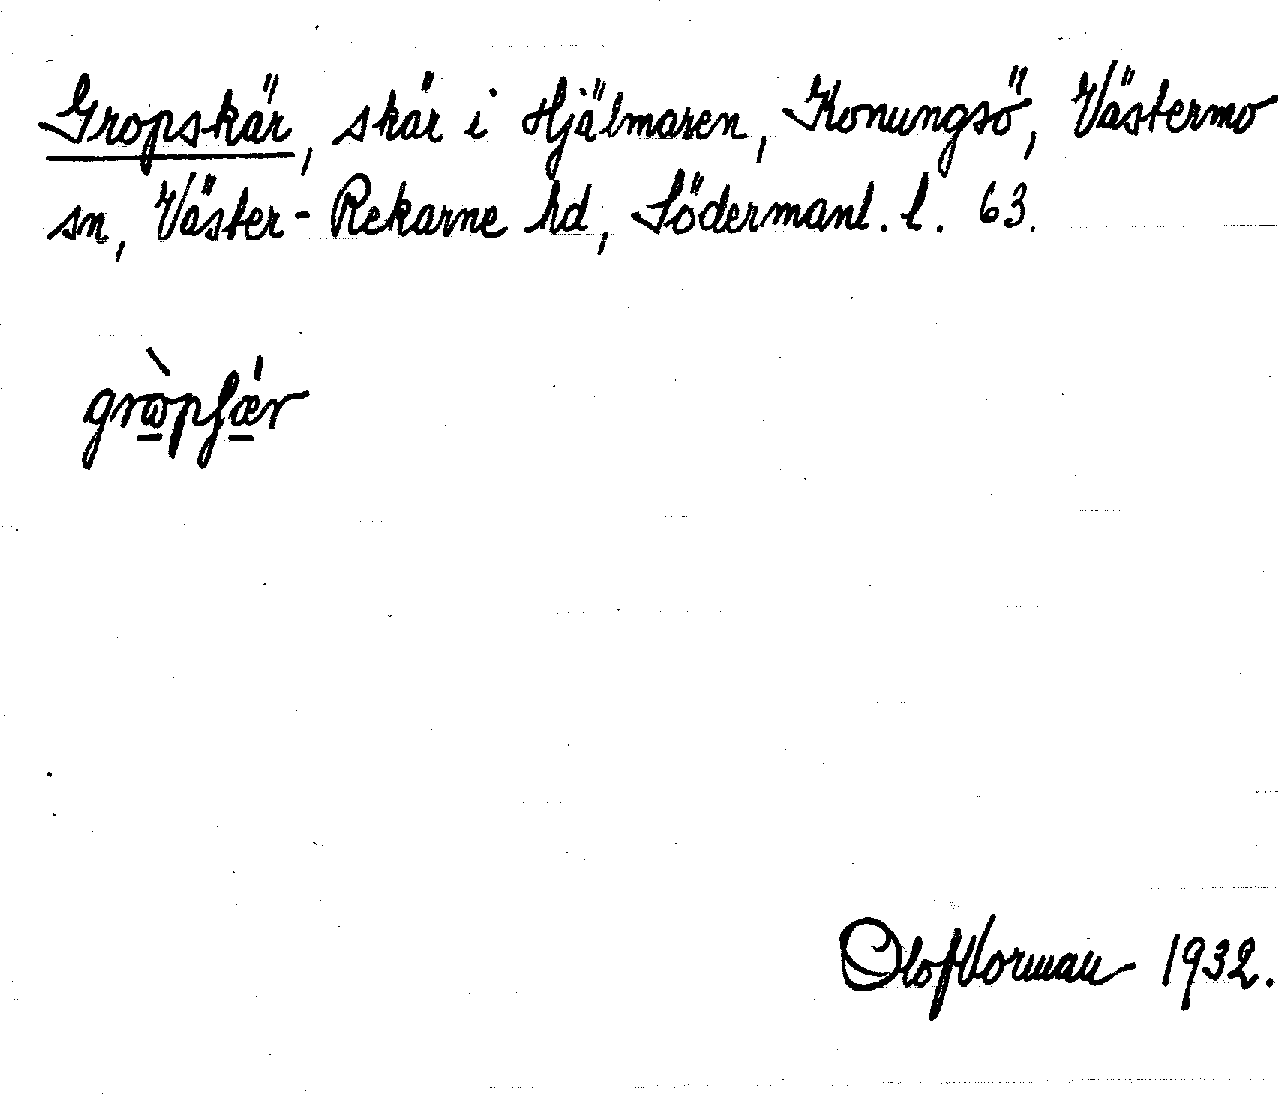 Gropskär, skär i Hjälmaren, Konungsö, Västermo
sn, Väster-Rekarne hd, Södermanl. l. 63.
grò̲pʃǽ̲r
Olof Vorman 1932.